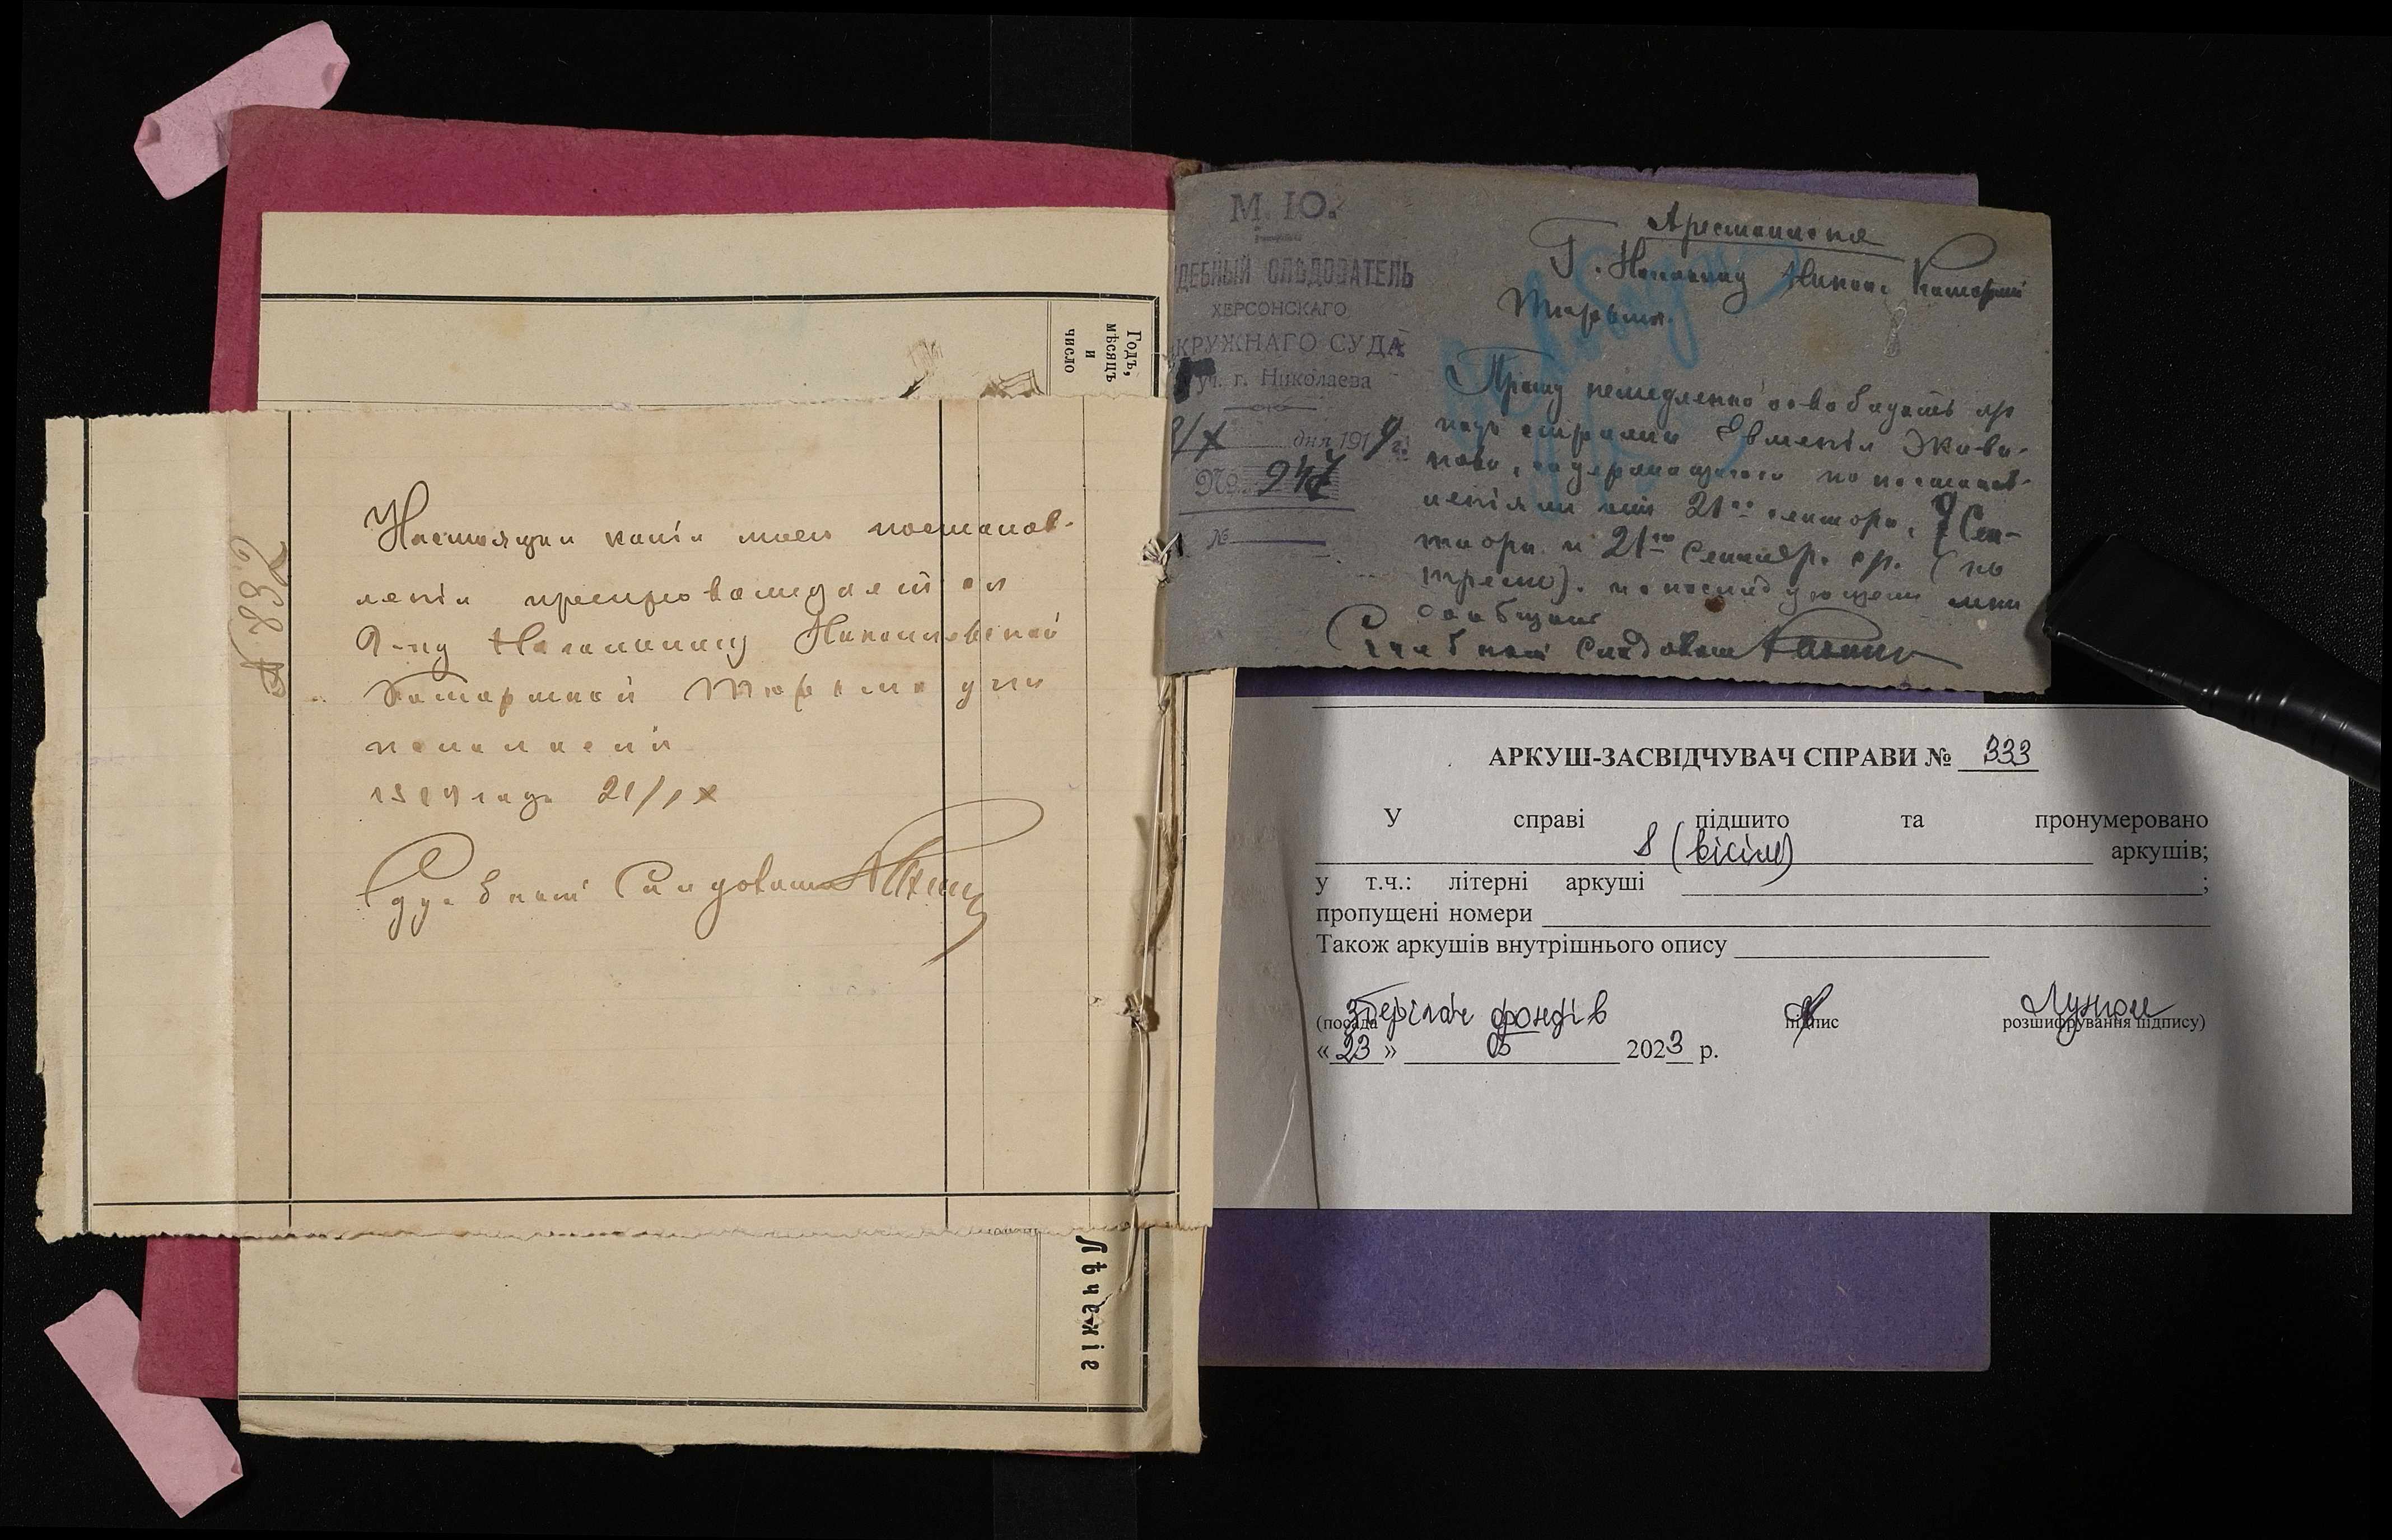 Годъ,
мѣсяцъ
и
число
№ 832
Настоящая копія моего постанов-
ленія препровождается
Г-ну Начальнику Николаевской
Каторжной Тюрьмы для
исполненія
1919 года 21/IX
Судебный Следователь
Лѣченіе
М. Ю.
ДЕБНЫЙ СЛѢДОВАТЕЛЬ
ХЕРСОНСКАГО
КРУЖНАГО СУДА
уч. г. Николаева
/X дня 1919 г.
№ 947
№
Арестантская
Г. Начальнику Никол. Каторжной
Тюрьмы.
Прошу немедленно освободить из
подъ стражи Евменія
содержащагося по постанов-
леніямъ отъ 21го
и 21го Сентября с. г. (по
мнѣ
сообщить
Судебный Следователь
АРКУШ-ЗАСВІДЧУВАЧ СПРАВИ № 333
У справі підшито та пронумеровано
8 (вісім) аркушів;
у т.ч.: літерні аркуші ;
пропущені номери
Також аркушів внутрішнього опису
Зберігач фондів
(посада підпис розшифрування підпису)
«23» 05 2023 р.